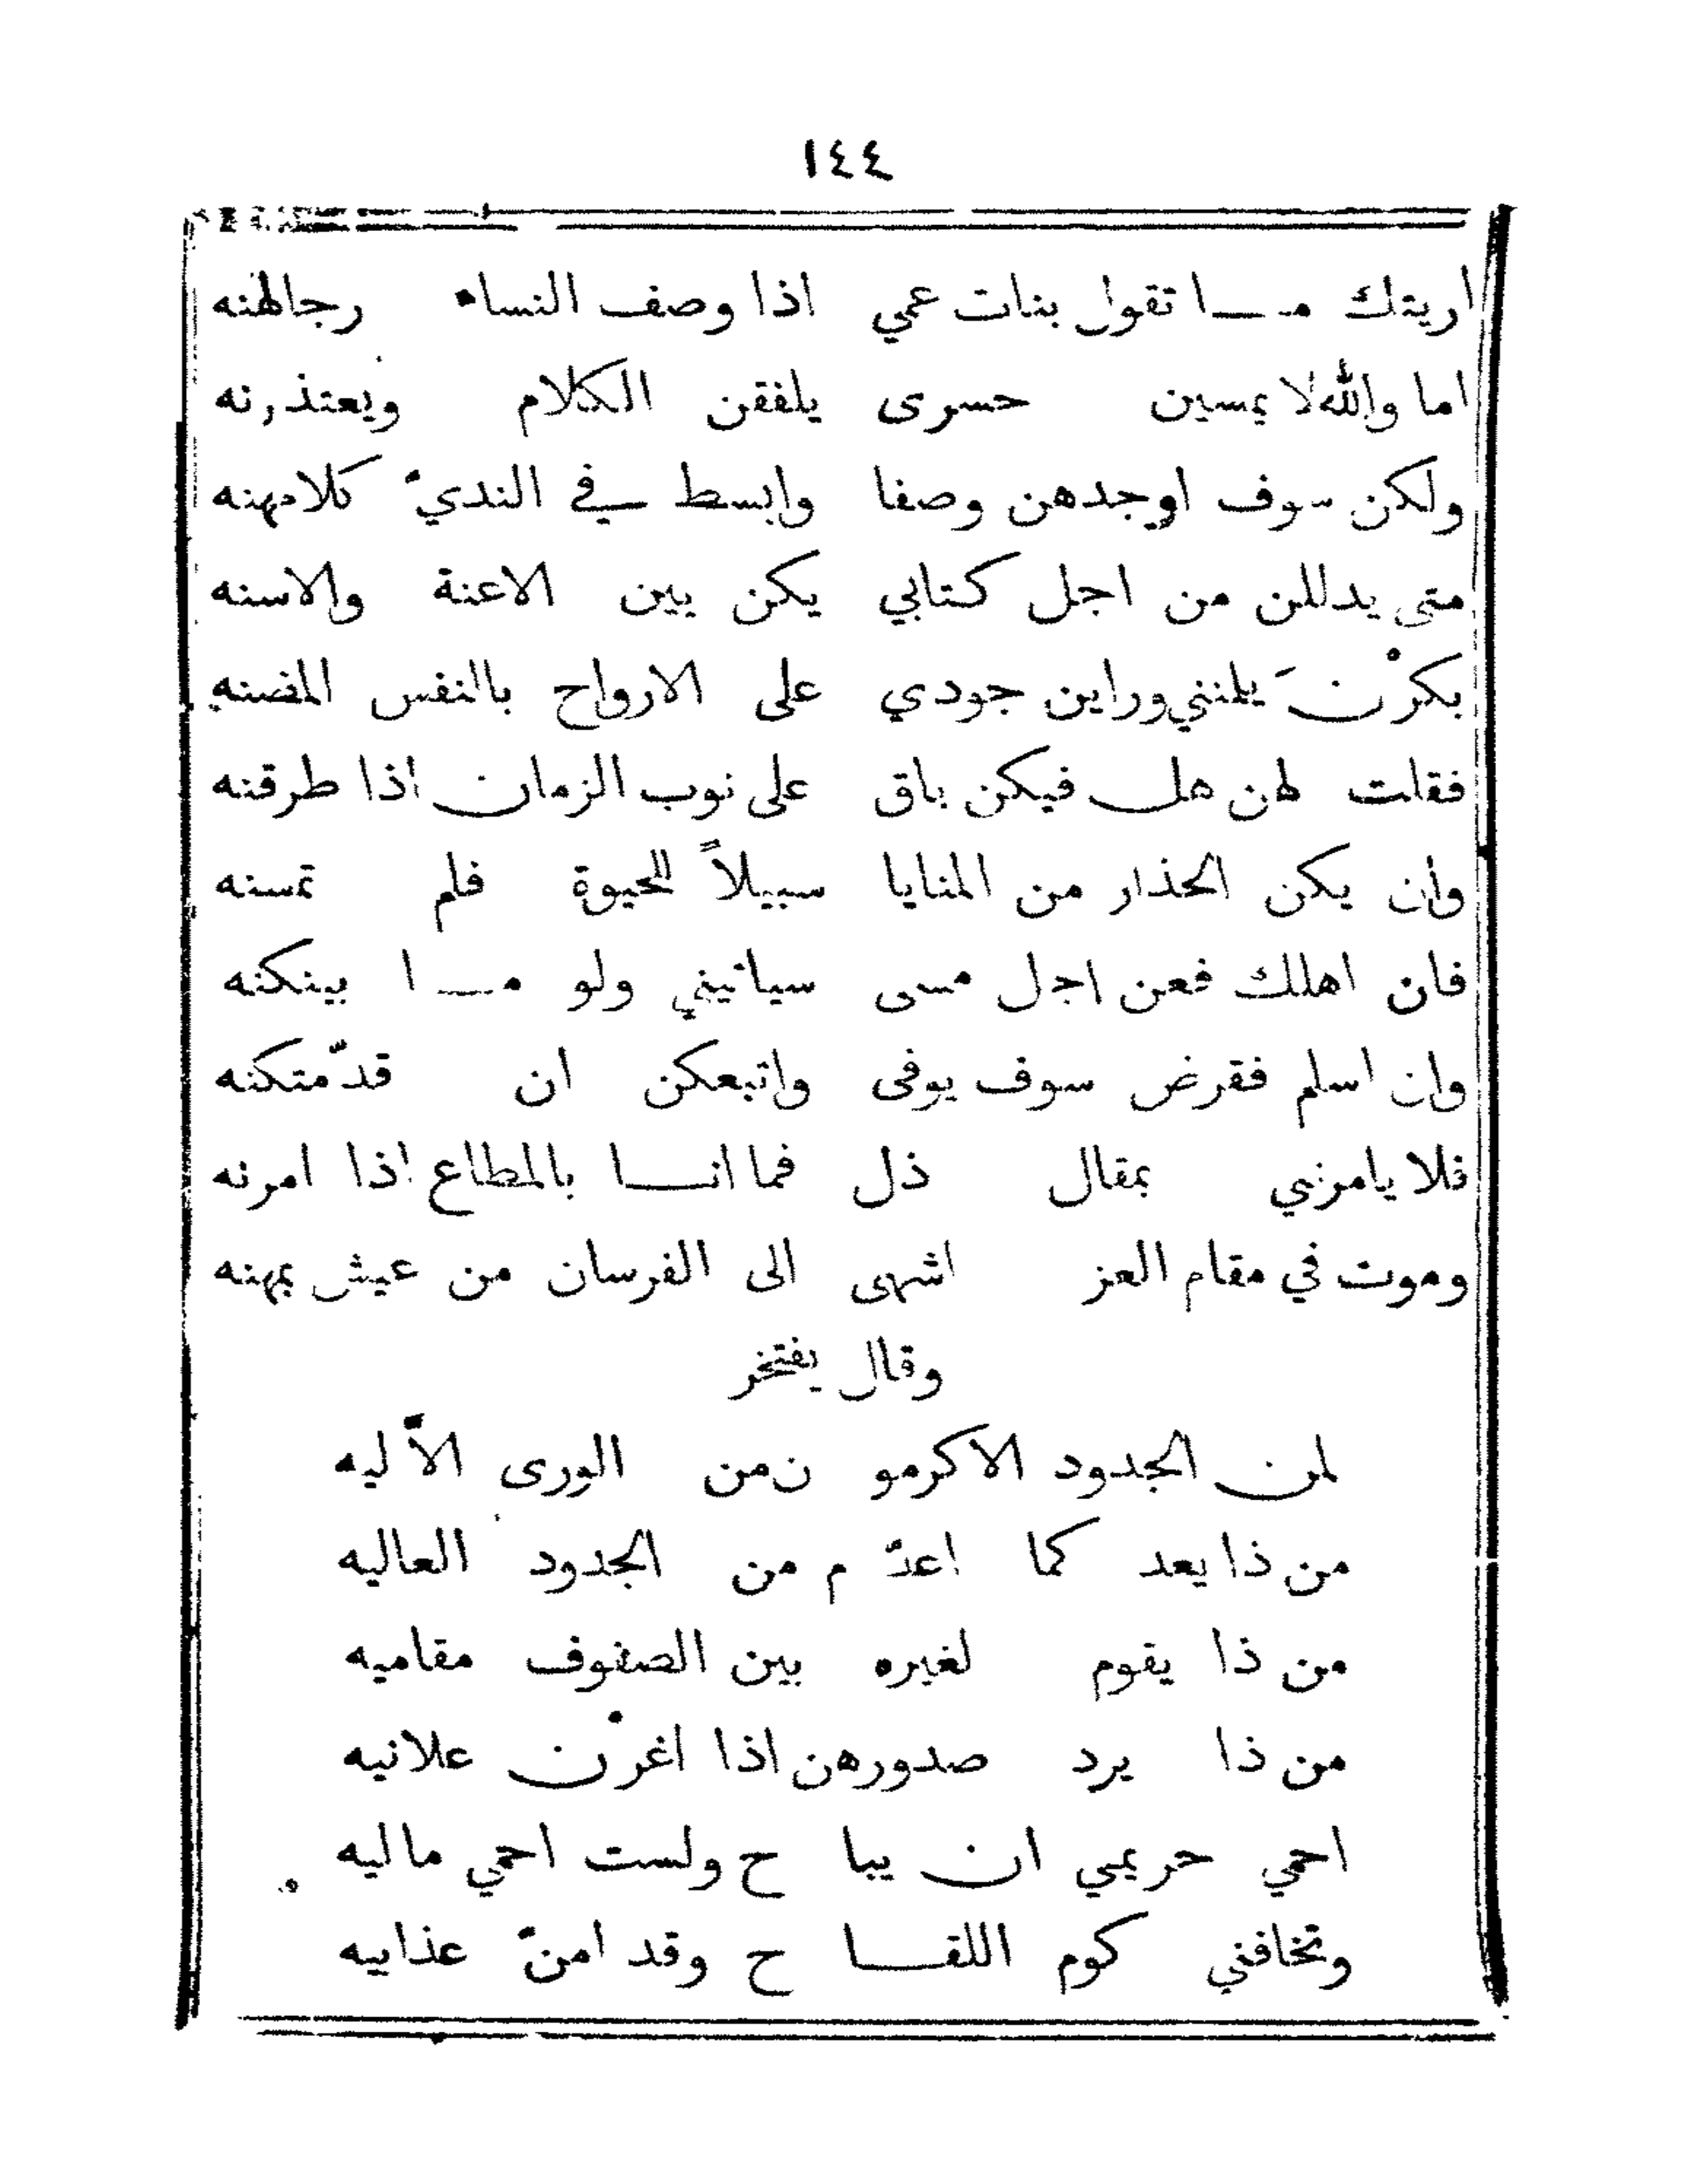 ١٤٤
اريتك مـــا تقول بنات عمي اذا وصف النساء رجالهنه
اما والله لا يمسين حسرى يلفقن الكلام ويعتذرنه
ولكن سوف اوجدهن وصفا وابسط في النديّ كلامهنه
متى يدللن من اجل كتابي يكن بين الاعنة والاسنه
بكرْنَ يلمنني وراين جودي على الارواح بالنفس المضنه
فقلت لهن هل فيكن باق على نوب الزمان اذا طرقنه
وان يكن الحذار من المنايا سبيلاً للحيوة فلم تمسنه
فان اهلك فعن اجل مسى سياتيني ولو مـــا بينكنه
وان اسلم فقرض سوف يوفى واتبعكن ان قدّمتكنه
فلا يامرنني بمقال ذل فما انـــا بالمطاع اذا امرنه
وموت في مقام العز اشهى الى الفرسان من عيش بمهنه
وقال يفتخر
لمن الجدود الاكرمو ن من الورى الاّ ليه
من ذا يعد كما اعدّ م من الجدود العاليه
من ذا يقوم لغيره بين الصفوف مقاميه
من ذا يرد صدورهن اذا اغرْن علانيه
احمي حريمي ان يبا ح ولست احمي ماليه
وتخافني كوم اللقـــا ح وقد امنّ عذابيه